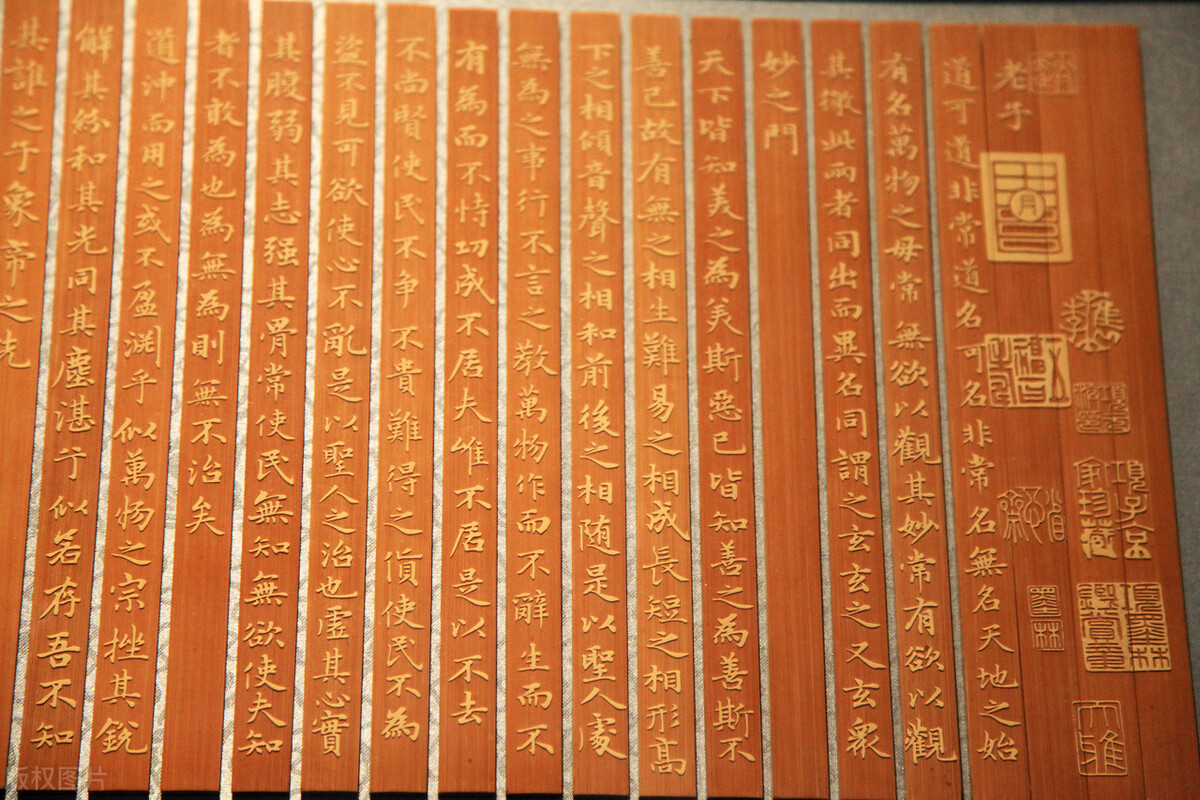 項子京家珍藏
項墨林鑑賞章
墨林
老子
道可道非常道名可名非常名無名天地之始
有名萬物之母常無欲以觀其妙常有欲以觀
其徼此兩者同出而異名同謂之玄玄之又玄眾
妙之門
天下皆知美之為美斯惡已皆知善之為善斯不
善已故有無之相生難易之相成長短之相形高
下之相傾音聲之相和前後之相随是以聖人處
無為之事行不言之教萬物作而不辭生而不
有為而不恃功成不居夫唯不居是以不去
不尚賢使民不争不貴難得之貨使民不為
盜不見可欲使心不亂是以聖人之治也虛其心實
其腹弱其志强其骨常使民無知無欲使夫知
者不敢為也為無為則無不治矣
道沖而用之或不盈渊乎似萬物之宗挫其銳
解其紛和其光同其塵湛乎似若存吾不知
其誰之子象帝之先
版权图片